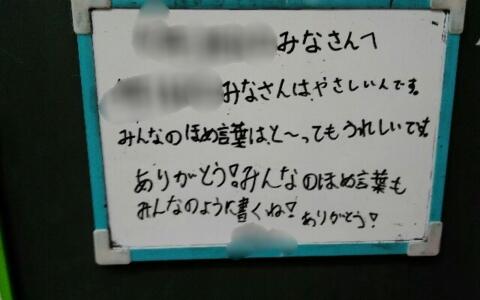 みなさんへ
みなさんはやさしいんです。
みんなのほめ言葉は、と～ってもうれしいです。
ありがとう!みんなのほめ言葉も
みんなのように書くね! ありがとう!